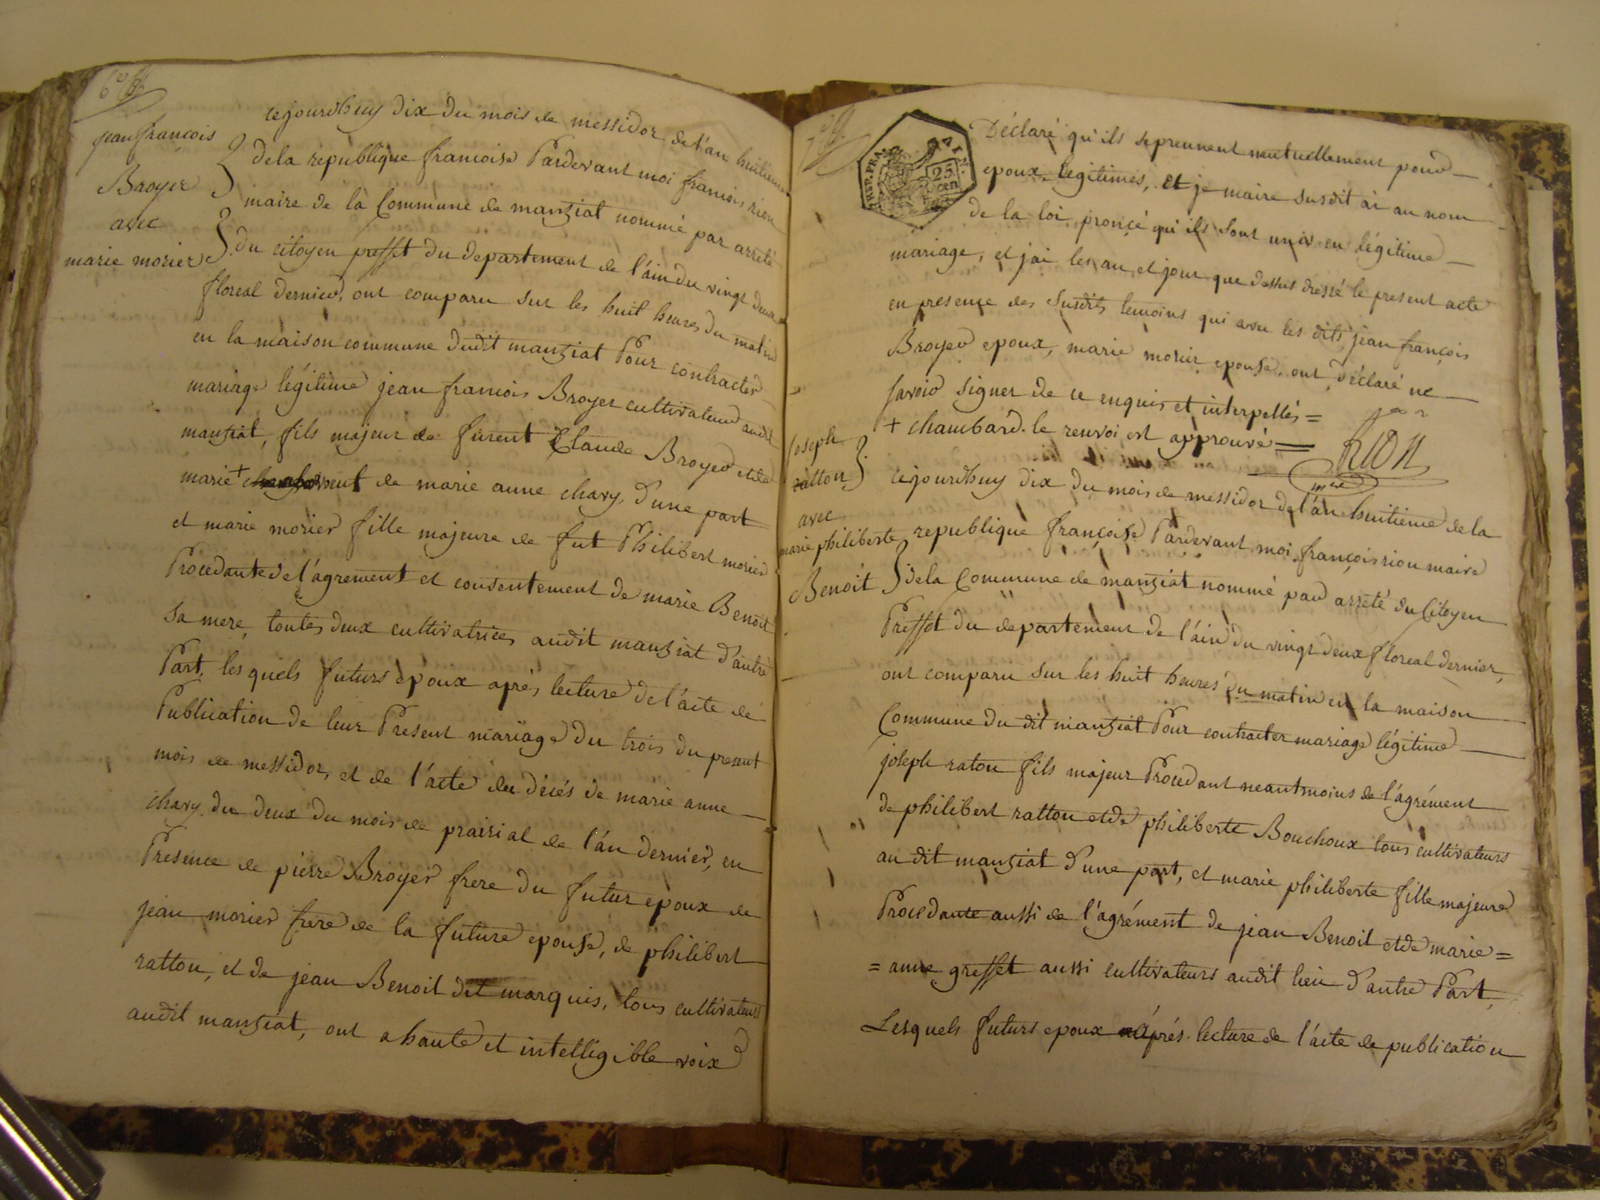 jean françois
Broyer
avec
marie morier
cejourdhuy dix du mois de messidor de l'an huitieme
de la republique francoise Pardevant moi francois rion
maire de la Commune de manziat nommé par arrété
du citoyen preffet du departement de l'ain du vingt deux
floreal dernier, ont comparu sur les huit heures du matin
en la maison commune dudit manziat Pour contracter
mariage légitime jean francois Broyer cultivateur audit
manziat, fils majeur de furent Claude Broyer et de
marie + de marie anne chary, d'une part
et marie morier fille majeure de fut Philibert morier
Procedante de l'agrement et consentement de marie Benoit
sa mere, toutes deux cultivatrices audit manziat d'autre
Part, les quels futurs époux aprés lecture de l'acte de
Publication de leur Present mariage du trois du present
mois de messidor, et de l'acte de décés de marie anne
chary du deux du mois de prairial de l'an dernier, en
Presence de pierre Broyer frere du futur epoux de
jean morier frere de la future epouse, de philibert
ratton, et de jean Benoit dit marquis, tous cultivateurs
audit manziat, ont a haute et intelligible voix
25
cen
Déclaré qu'ils se prennent mutuellement pour
epoux legitimes, et je maire susdit ai au nom
de la loi, proncé qu'ils sont unis en légitime
mariage, et j'ai les an et jour que dessus dressé le present acte
en presence des susdits temoins qui avec les dits jean françois
Broyer epoux, marie morier epouse, ont déclaré ne
savoir signer de ce enquis et interpellés =
+ chambard. le renvoi est approuvé
Rion
mre
joseph
ratton
avec
marie philiberte
Benoit
cejourdhuy dix du mois de messidor de l'an huitieme de la
republique françoise Pardevant moi françois rion maire
de la Commune de manziat nommé par arrété du Citoyen
Preffet du departement de l'ain du vingt deux floreal dernier,
ont comparu sur les huit heures du matin en la maison
Commune du dit manziat Pour contracter mariage légitime
joseph raton fils majeur Procedant neantmoins de l'agrément
de philibert ratton et de philiberte Bouchoux tous cultivateurs
au dit manziat d'une part, et marie philiberte fille majeure
Procedante aussi de l'agrément de jean Benoit et de marie =
= anne greffet aussi cultivateurs audit lieu d'autre Part,
Lesquels futurs epoux aprés lecture de l'acte de publication